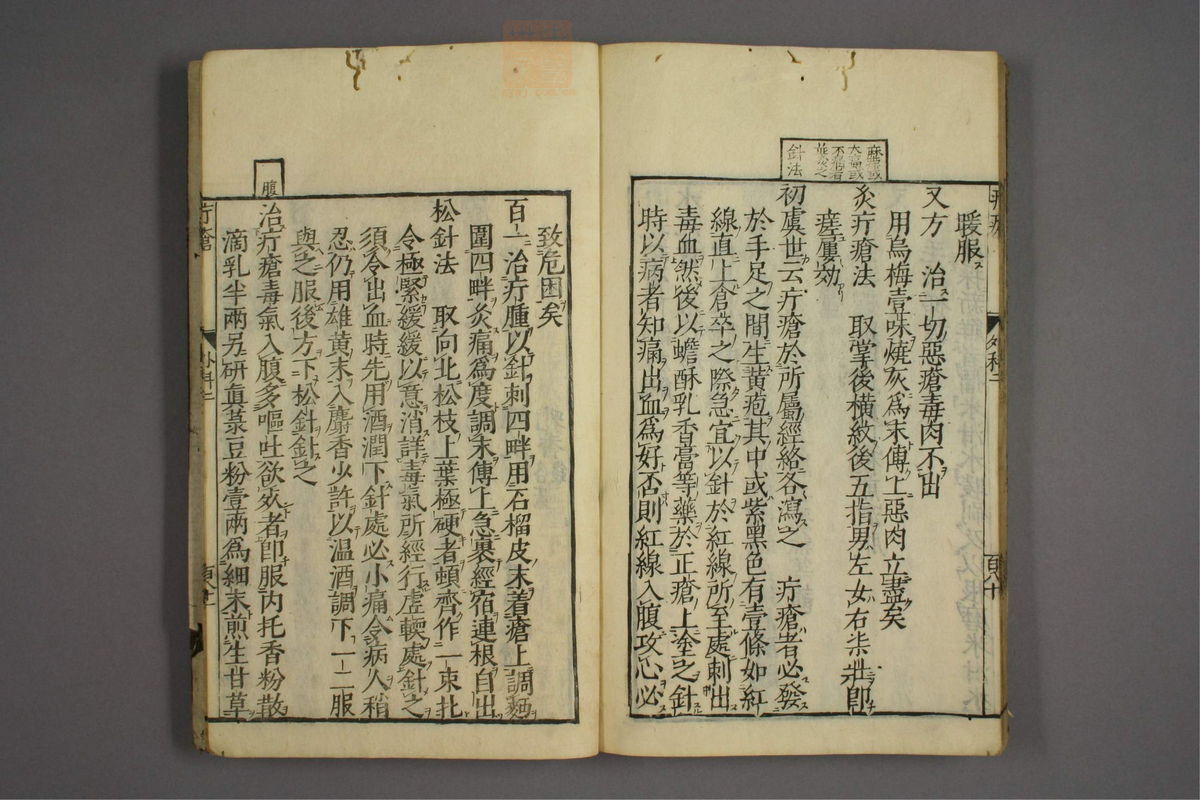 麻癢或
大痛或
不痛者
並灸之
針法
暖服
又方 治一切惡瘡毒肉不出
用烏梅壹味燒灰爲末傅上惡肉立盡矣
灸疔瘡法 取掌後横紋後五指男左女右柒壯即
瘥屢効
初虞世云疔瘡於所屬經絡各瀉之 疔瘡者必發
於手足之間生黄疱其中或紫黑色有壹條如紅
線直上倉卒之際急宜以針於紅線所至處刺出
毒血然後以蟾酥乳香膏等藥於正瘡上塗之針
時以病者知痛出血爲好否則紅線入腹攻心必
致危困矣
百一治疔腫以針刺四畔用石榴皮末着瘡上調麪
圍四畔灸痛爲度調末傅上急裹經宿連根自出
松針法 取向北松枝上葉極硬者頓齊作一束扎
令極緊緩緩以意消詳毒氣所經行虚軟處針之
須令出血時先用酒潤下針處必小痛令病人稍
忍仍用雄黄末入麝香少許以温酒調下一二服
與之服後方下松針針之
腹
治疔瘡毒氣入腹多嘔吐欲死者即服内托香粉散
滴乳半兩另研眞菉豆粉壹兩爲細末煎生甘草
疔瘡
外科二